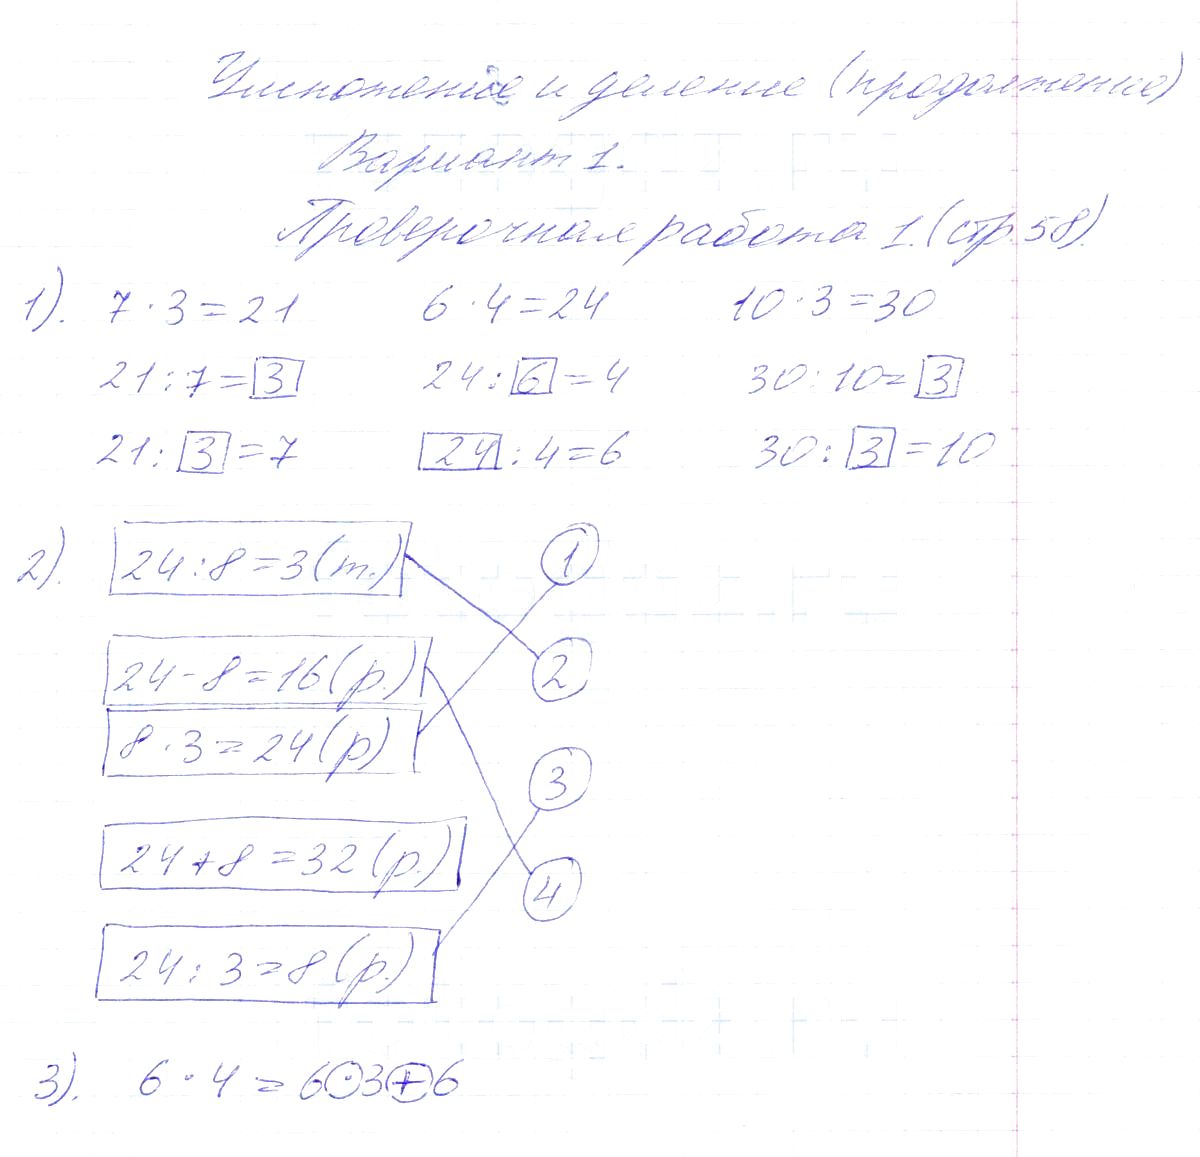 Умножение и деление (продолжение)
Вариант 1.
Проверочная работа 1. (стр. 58).
1). 7 · 3 = 21 6 · 4 = 24 10 · 3 = 30
21 : 7 = 3 24 : 6 = 4 30 : 10 = 3
21 : 3 = 7 24 : 4 = 6 30 : 3 = 10
2). 24 : 8 = 3 (т.) 1
24 - 8 = 16 (р.) 2
8 · 3 = 24 (р) 3
24 + 8 = 32 (р.) 4
24 : 3 = 8 (р.)
3). 6 · 4 = 6 · 3 + 6